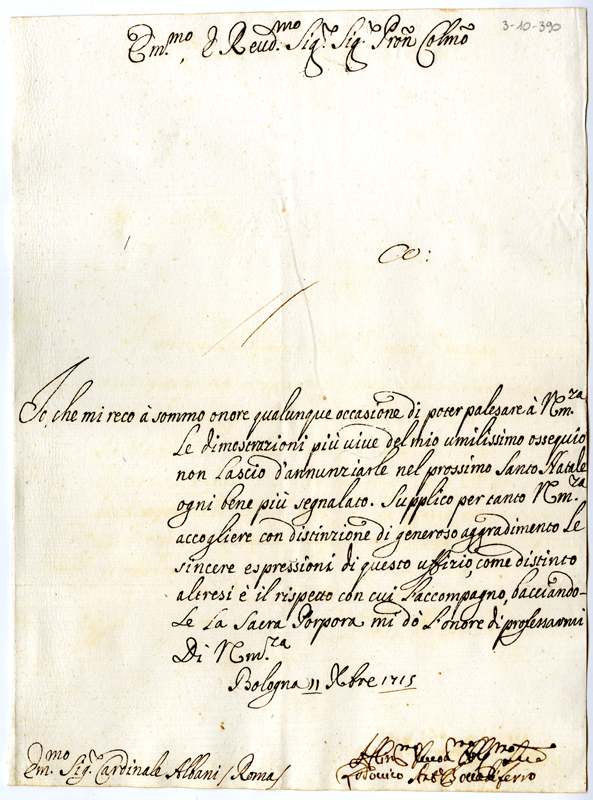 3-10-390
Em.mo, e Reud.mo Sig.r Sig.r Pron Colmo
Io, che mi reco à sommo onore qualunque occasione di poter palesare à V Em.za
Le dimostrazioni più viue del mio umilissimo ossequio
non Lascio d'annunziarle nel prossimo Santo Natale
ogni bene più segnalato. Supplico per tanto V Em.za
accogliere con distinzione di generoso aggradimento Le
sincere espressioni di questo uffizio, come distinto
altresi è il rispetto con cui L'accompagno, bacciando-
Le La Sacra Porpora mi dò L'onore di professarmi
Di V Em.za
Bologna 11 Xbre 1715
Em.mo Sig.r Cardinale Albani / Roma /